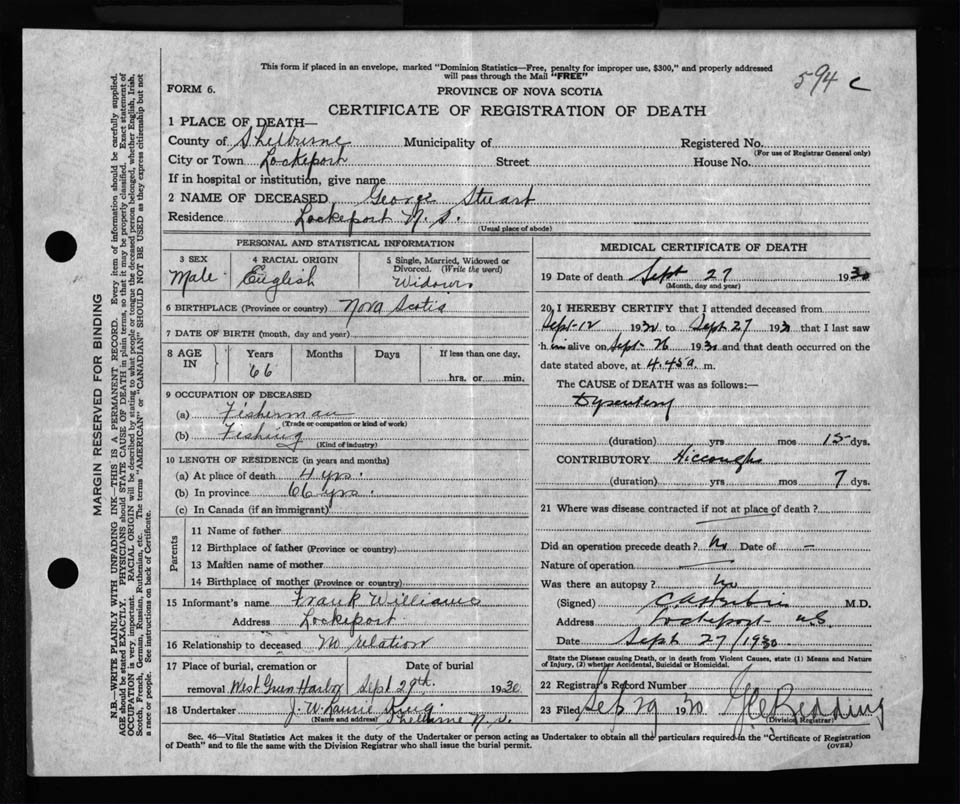 This form if placed in an envelope, marked "Dominion Statistics—Free, penalty for improper use, $300," and properly addressed
will pass through the Mail "FREE"
594 c
FORM 6.
PROVINCE OF NOVA SCOTIA
CERTIFICATE OF REGISTRATION OF DEATH
1 PLACE OF DEATH—
County of Shelburne Municipality of Registered No.
(For use of Registrar General only)
City or Town Lockeport Street House No.
If in hospital or institution, give name
2 NAME OF DECEASED George Stuart
Residence Lockeport N. S.
(Usual place of abode)
PERSONAL AND STATISTICAL INFORMATION
3 SEX 4 RACIAL ORIGIN 5 Single, Married, Widowed or
Divorced. (Write the word)
Male English Widower
6 BIRTHPLACE (Province or country) Nova Scotia
7 DATE OF BIRTH (month, day and year)
8 AGE IN Years Months Days If less than one day,
66 hrs. or min.
9 OCCUPATION OF DECEASED
(a) Fisherman
(Trade or occupation or kind of work)
(b) Fishing
(Kind of industry)
10 LENGTH OF RESIDENCE (in years and months)
(a) At place of death 4 yrs.
(b) In province 66 yrs.
(c) In Canada (if an immigrant)
Parents
11 Name of father
12 Birthplace of father (Province or country)
13 Maiden name of mother
14 Birthplace of mother (Province or country)
15 Informant's name Frank Williams
Address Lockeport
16 Relationship to deceased No relation
17 Place of burial, cremation or Date of burial
removal West Green Harbor Sept 29th. 1930
18 Undertaker J. W.
(Name and address) Shelburne N. S.
MEDICAL CERTIFICATE OF DEATH
19 Date of death Sept 27 1930
(Month, day and year)
20 I HEREBY CERTIFY that I attended deceased from
Sept-12 1930 to Sept 27 1930 that I last saw
him alive on Sept- 26 1930 and that death occurred on the
date stated above, at 4.45 a. m.
The CAUSE of DEATH was as follows:—
Dysentery
(duration) yrs mos 15 dys.
CONTRIBUTORY Hiccoughs
(duration) yrs mos 7 dys.
21 Where was disease contracted if not at place of death?
Did an operation precede death? No Date of —
Nature of operation
Was there an autopsy? No
(Signed) M.D.
Address Lockeport N.S.
Date Sept 27/1930
State the Disease causing Death, or in death from Violent Causes, state (1) Means and Nature
of Injury, (2) whether Accidental, Suicidal or Homicidal.
22 Registrar's Record Number
23 Filed Sep 29 1930 Redding
(Division Registrar)
Sec. 46—Vital Statistics Act makes it the duty of the Undertaker or person acting as Undertaker to obtain all the particulars required in the "Certificate of Registration
of Death" and to file the same with the Division Registrar who shall issue the burial permit.
(OVER)
MARGIN RESERVED FOR BINDING
N.B.—WRITE PLAINLY WITH UNFADING INK—THIS IS A PERMANENT RECORD. Every item of information should be carefully supplied.
AGE should be stated EXACTLY. PHYSICIANS should STATE CAUSE OF DEATH in plain terms, so that it may be properly classified. Exact statement of
OCCUPATION is very important. RACIAL ORIGIN will be described by stating to what people or tongue the deceased person belonged, whether English, Irish,
Scotch, French, German, Russian, Ruthenian, etc. The terms "AMERICAN" or "CANADIAN" SHOULD NOT BE USED as they express citizenship but not
a race or people. See instructions on back of Certificate.